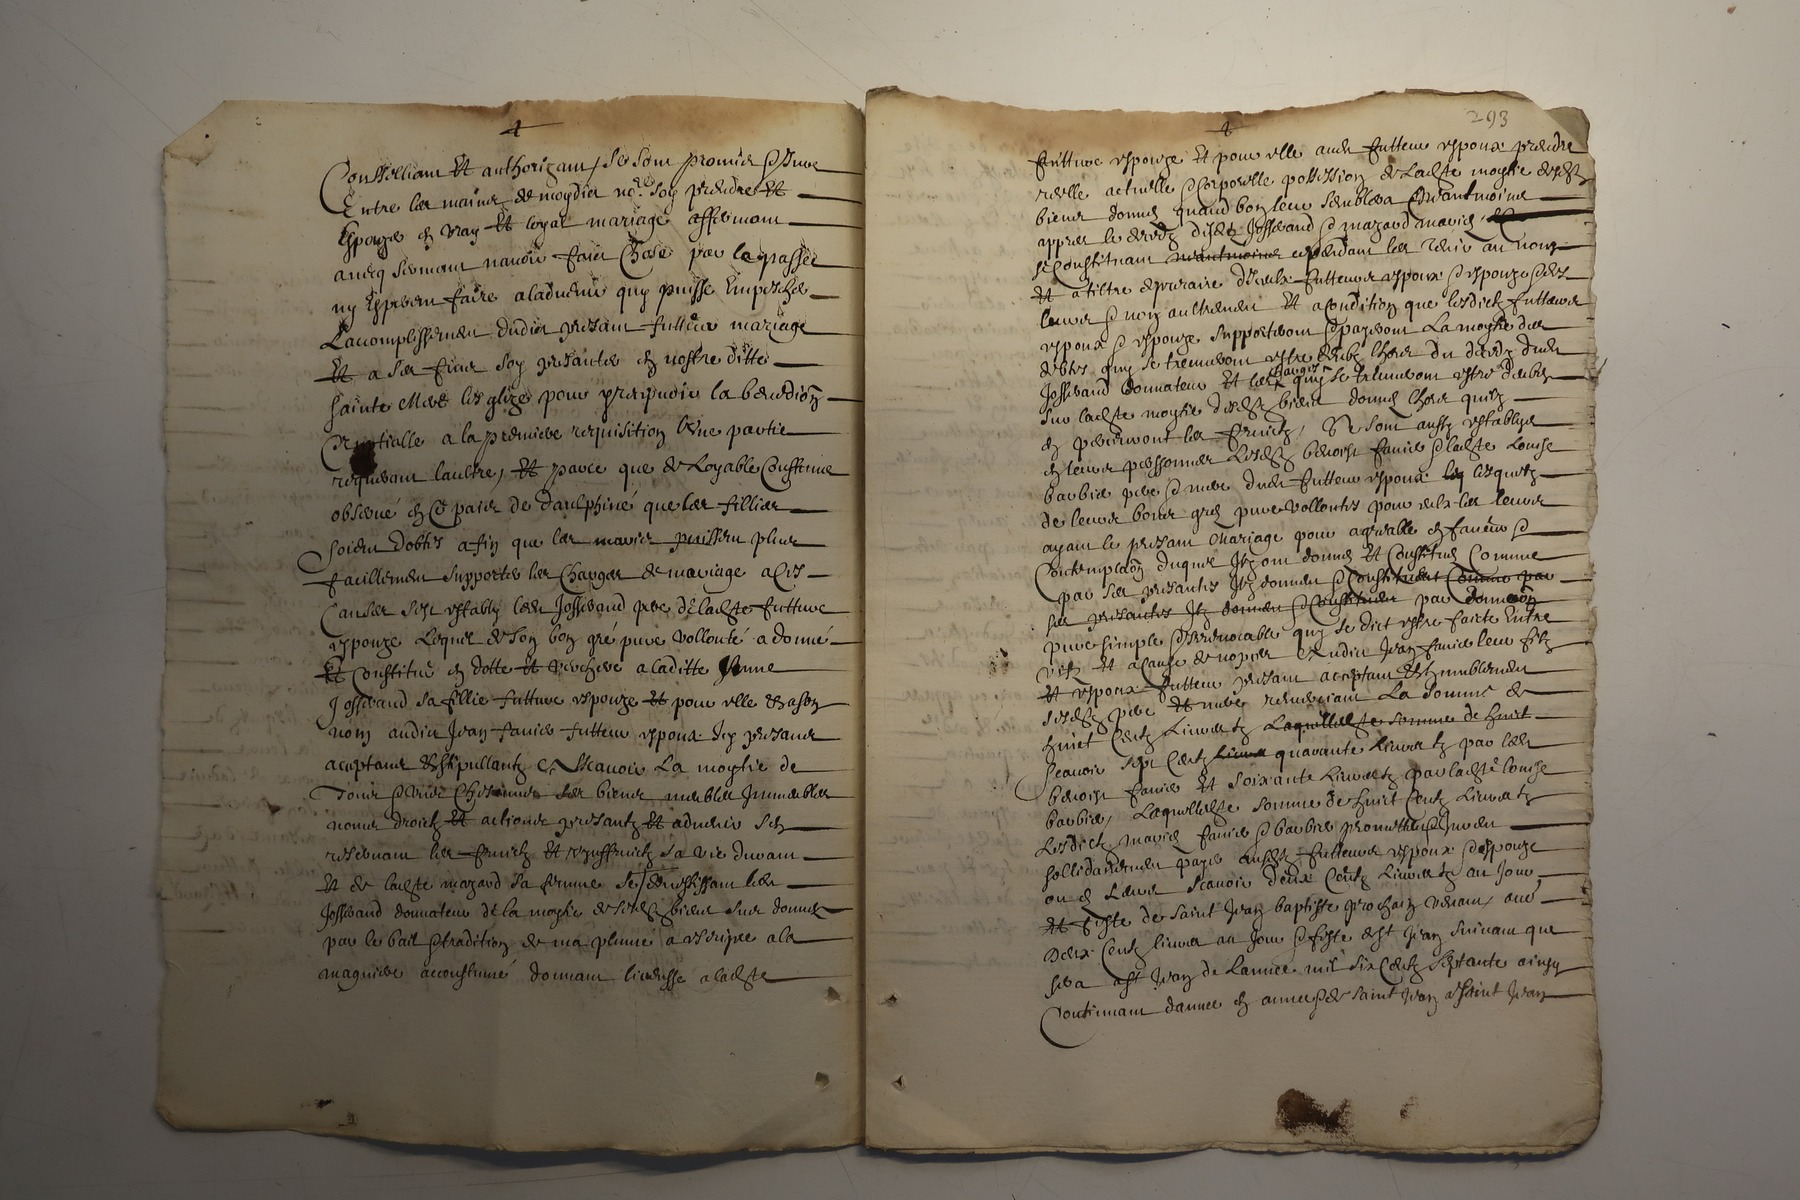 Conseilliam et authorizam, se sont promis et Juré
Entre les mains de moydict no.re soy prendre et
Espouzer en vray et loyal mariage affermant
avecq serment navoir faict Chose par le passée
ny Esperent faire a ladvenir quy puisse Empescher
Lacomplissement dudict present futteur mariage
Et a ses fins soy presanter en nostre ditte
sainte Mere lesglize pour y recepvoir la benediction
Nuptialle a la premiere requisition lune partie
requerant laultre, Et parce que de Loyable Coustume
observé en Ce pais de daulphiné que les fillies
soient dobtés afin que les maries puissent plus
facillement supporter les Charges de mariage a Ces
Causes sest estably ledit Josserand pere de ladite future
espouze Lequel de son bon gré pure vollonté a donné
Et Constitué en dotte et verchere a laditte Anne
Josserand sa fillie future espouze et pour elle et a son
nom audit Jean Faure futteur espoux Icy presant
acceptant et stipullant Scavoir La moytie de
Tous et ungs Chescungs ses biens meubles Immeubles
noms droictz et actions presantz et advenir sen
reservant les fruictz et uzuffruictz sa vie durant
Et de ladite mazard sa femme se devestissant ledit
Josserand donnateur de la moytie desdits biens sus donnés
par le bail et tradition de ma plume a escripre a la
maniere acoustumé donnant licensse a ladite
293
future espouze Et pour elle audit futteur espoux prendre
reelle actuelle et Corporelle possession de Ladite moytie desdits
biens donnés quand bon leur semblera
apprès le deces desdits Josserand et mazard mariés
se Constituant neantmoins cependant les tenir au nom
et a tiltre de precaire diceux futteurs espoux et espouze
et non aultrement Et a Condition que lesdictz futteurs
espoux et espouze supporteront et payeront La moytie des
debtes quy se treuveront estre deubz lhors du deces dudit
Josserand donnateur Et les charges quy se treuveront estre deubz
sur ladite moytie desdits biens donnés lhors quilz
en percevront les fruictz, Se sont aussy establys
en leurs personnes Lesdits benoist Faure et ladite Louise
barbier pere et mere dudit futteur espoux lesquelz
de leurs bons grés pure vollontés pour eulx les leurs
ayant le presant Mariage pour agreable en faveur et
Contemplaon duquel Ilz ont donné et Constitué Comme
par ses presantes Ilz donnent et Constituent Comme par
ses presantes Ilz donnent et Constituent par donnaon
pure simple et Irrevocable quy se dict estre faicte Entre
vifz et a Cause de nopces audict Jean Faure leur filz
Et espoux futteur presant acceptant et humblement
sesdits pere et mere remerciant La somme de
huict Centz Livres Laquelle somme de huict
Scavoir sept Centz livres quarante Livres par ledit
benoist Faure et soixante Livres par ladite louise
barbier, Laquelle somme de huict Centz Livres
Lesdictz mariés Faure et barbier promettent
sollidairement payer ausdits futteurs espoux et espouze
Scavoir deux Centz Livres au Jour
et feste de saint Jean baptiste prochain venant,
deux Centz livres au Jour et feste de st Jean suivant que
sera a st Jean de Lannee mil six Centz septante ainsy
Continuant dannee en annee et de saint Jean a saint Jean